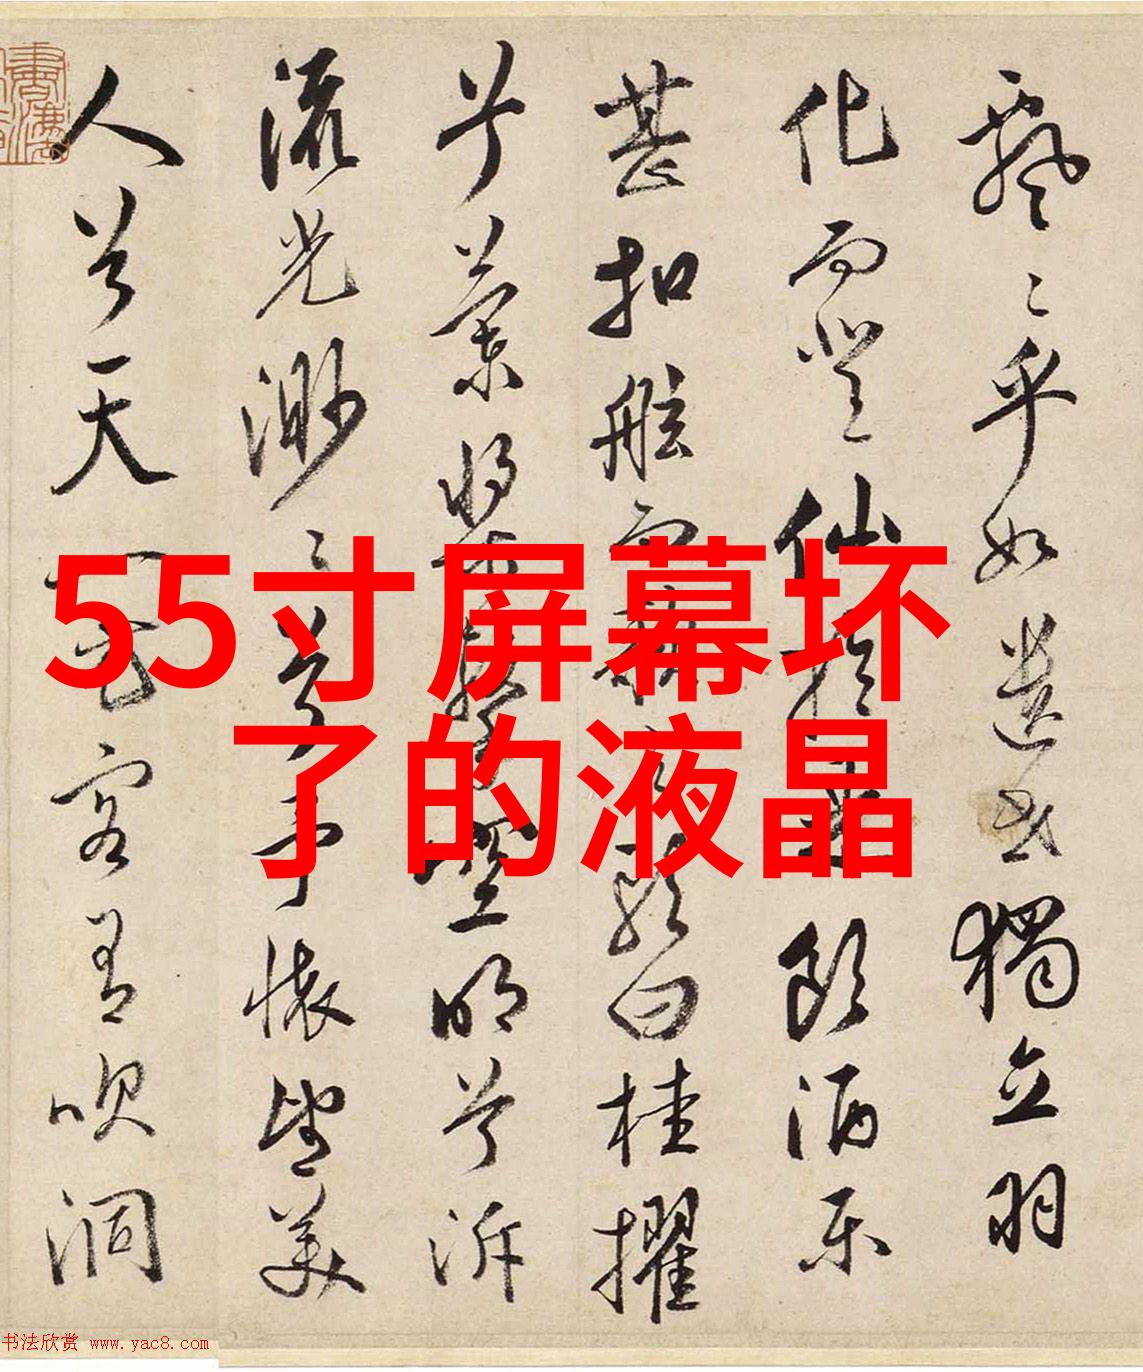 飄〻乎如遺世獨立羽
化而登仙於是飲酒樂
甚扣舷而歌之歌曰桂擢
兮蘭槳擊空明兮泝
流光渺〻兮予懷望美
人兮天一方客有吹洞
55寸屏幕坏
了的液晶
书法欣赏 www.yac8.com